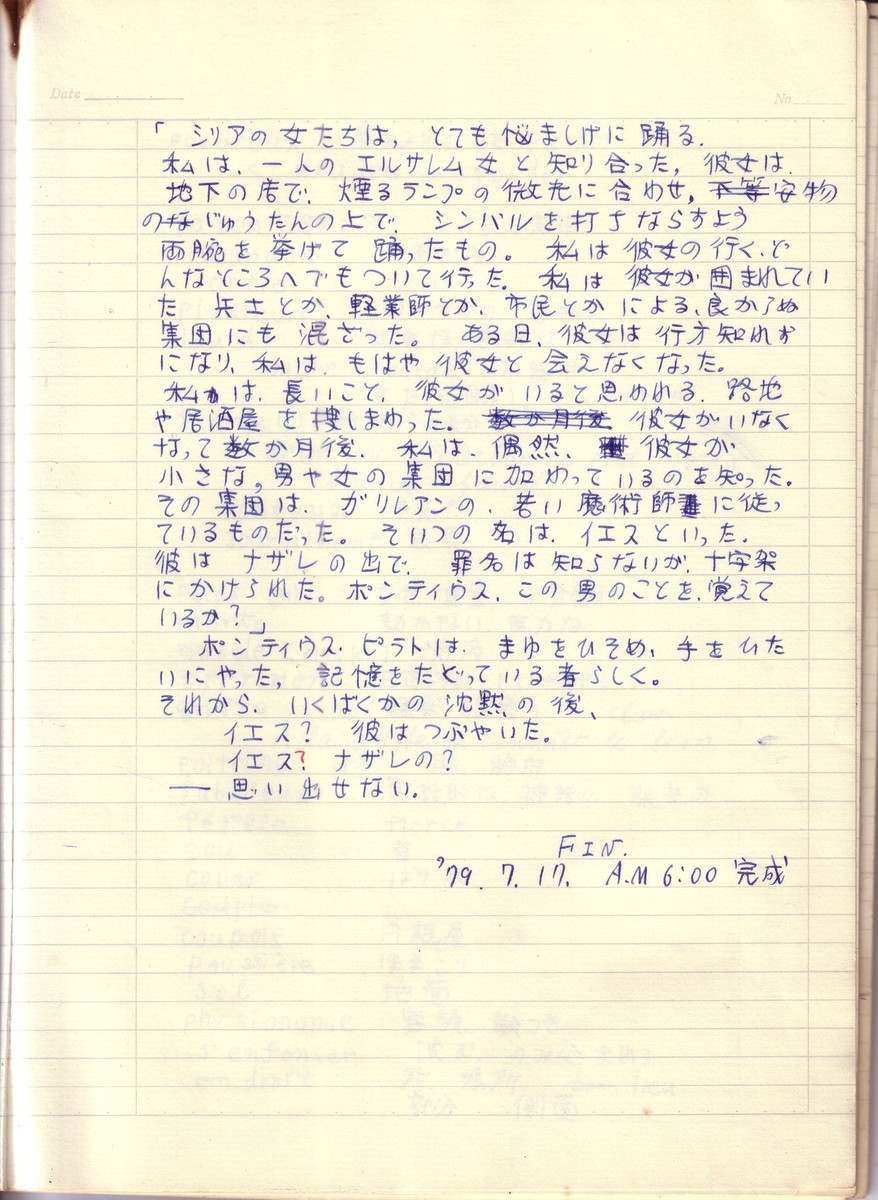 Date
No
「シリアの女たちは，とても悩ましげに踊る．
私は、一人のエルサレム女と知り合った，彼女は．
地下の店で、煙るランプの微光に合わせ，下等安物
のなじゅうたんの上で、シンバルを打ちならすよう
両腕を挙げて踊ったもの。私は彼女の行く、ど
んなところへでもついて行った。私は彼女が囲まれてい
た 兵士とか、軽業師とか、市民とかによる、良からぬ
集団にも混ざった。ある日、彼女は行方知れず
になり、私は、もはや彼女と会えなくなった。
私は、長いこと、彼女がいると思われる、路地
や居酒屋を捜しまわった。数か月後 彼女がいなく
なって数か月後、私は、偶然、彼女が
小さな，男や女の集団に加わっているのを知った．
その集団は、ガリレアンの、若い魔術師に従っ
ているものだった。そいつの名は、イエスといった．
彼はナザレの出で、罪名は知らないが、十字架
にかけられた。ポンティウス、この男のことを、覚えて
いるか？」
ポンティウス・ピラトは、まゆをひそめ、手をひた
いにやった，記憶をたどっている者らしく。
それから、いくばくかの沈黙の後、
イエス？ 彼はつぶやいた。
イエス？ ナザレの？
── 思い出せない．
FIN.
'79. 7. 17. A.M 6:00 完成